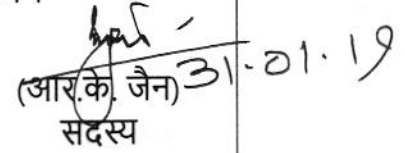 (आर.के. जैन) 31.01.19
सदस्य